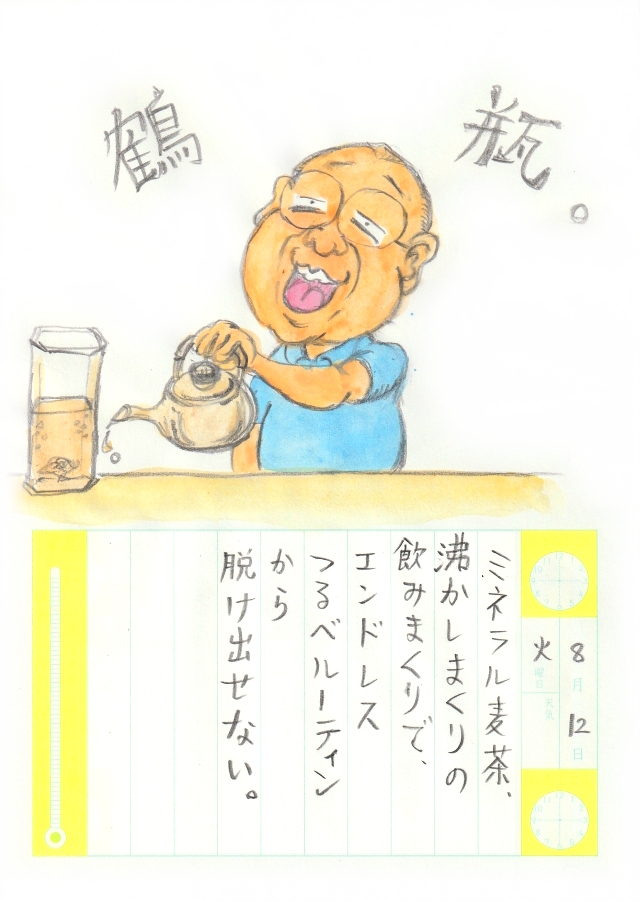 鶴瓶。
8月12日
火曜日
天気
ミネラル麦茶、
沸かしまくりの
飲みまくりで、
エンドレス
つるべルーティン
から
脱け出せない。